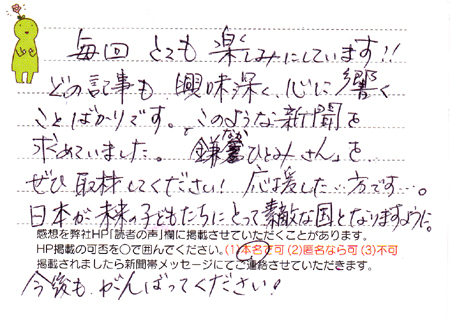 毎回 とても 楽しみにしています!!
どの記事も 興味深く、心に 響く
ことばかりです。このような新聞を
求めていました。 鎌 ひとみさんを
ぜひ 取材してください! 応援した…方です…。
日本が未来の子どもたちにとって素敵な国となりますように。
感想を弊社HP「読者の声」欄に掲載させていただくことがあります。
HP掲載の可否を○で囲んでください。(1)本名で可(2)匿名なら可(3)不可
掲載されましたら新聞帯メッセージにてご連絡させていただきます。
今後も、がんばってください!